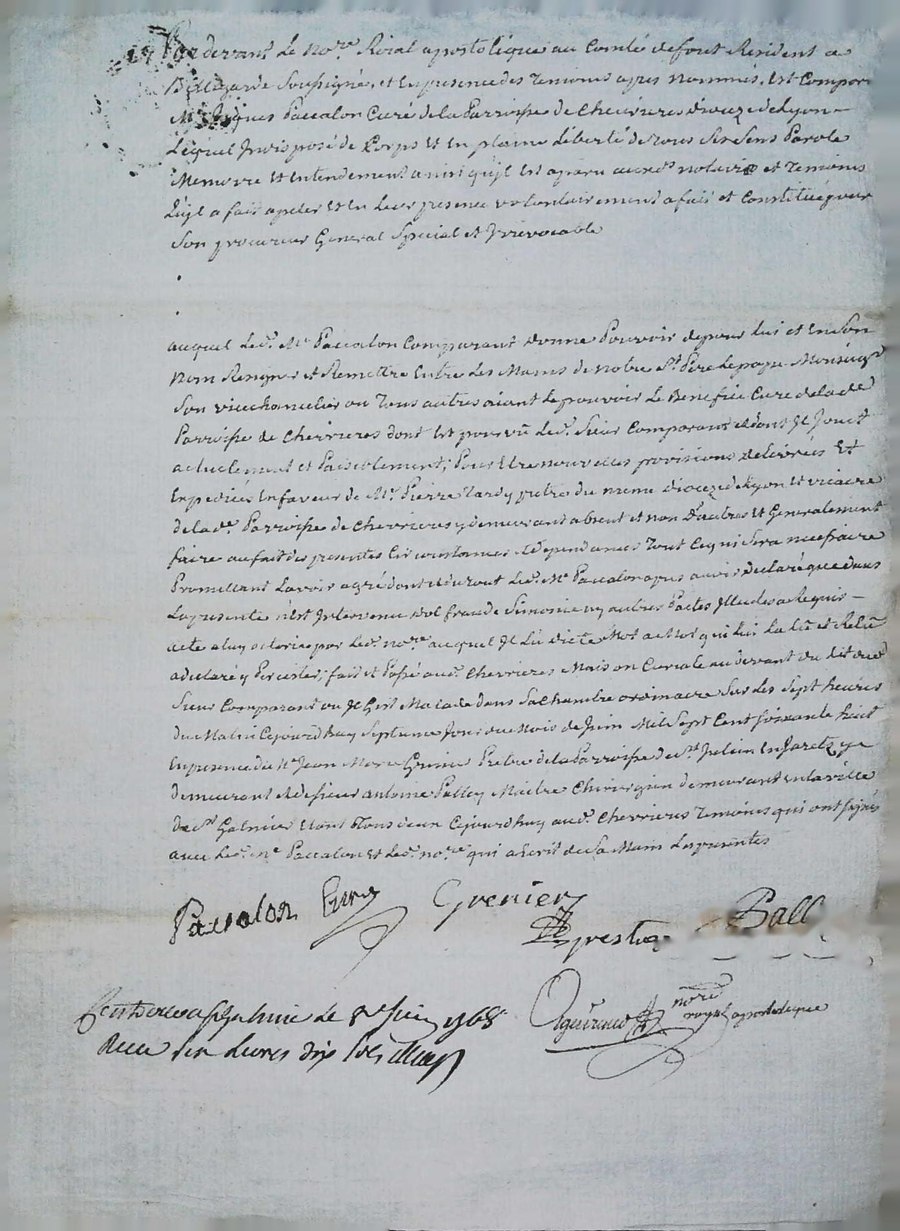 Pardevant Le no.re Roial apostolique au Comté deforet Resident a
Bellegarde Soussigné, et En presence des Temoins apres nommés, Est Comparu
M.re Pascalon Curé de la Parroisse de Chevrieres dioceze de Lyon
Lequel Indisposé de Corps Et En plaine Liberté de tous Ses Sens Parole
Memoire Et Entendement ainsi quil Est aparu aud. notaire et Temoins
quil a fait apeller Et En Leur presence volontairement a fait et Constitué pour
Son procureur General Special et Irrevocable
auquel Led. M.e Pascalon Comparant donne Pouvoir de pour lui et En Son
nom Resigner et Remettre Entre Les Mains de notre S.t Pere Le pape Monseig.r
Son vice chancelier ou Tous autres aiant le pouvoir Le Benefice Cure de lad.e
Parroisse de Chevrieres dont Est pourvû Led. Sieur Comparant et dont Il Jouit
actuelement et Paisiblement, Pour Etre nouvelles provisions delivrées Et
Expediées En faveur de M.re Pierre Tardy pretre du meme dioceze de Lyon Et vicaire
de lad.e Parroisse de Chevrieres y demeurant absent et non d'autres Et Generalement
faire au fait des presentes Circonstances et dependances Tout Ce qui Sera necessaire
Promettant Lavoir agré dont et du tout Led. M.e Pascalon apres avoir declaré que dans
La presente n'est Intervenu dol fraude Simonie ny autres Pactes Illicites a Requis
acte a luy octorié par Led. no.re auquel Il La dicté Mot a Mot qui lui La lû et Relû
a declaré y Persister, fait et Passé aud. Chevrieres Maison Curiale au devant du dit
Sieur Comparant ou Il Git Malade dans Sa Chambre ordinaire Sur Les Sept heures
du Matin Cejourdhuy Septieme Jour du Mois de Juin Mil Sept Cent soixante huit
En presence de M.e Jean Marie Grenier Pretre de la Parroisse de S.t Julien En Jaretz y
demeurant et de sieur antoine Palley Maitre Chirurgien demeurant En la ville
de S.t Galmier Etant Tous deux Cejourdhuy aud. Chevrieres Temoins qui ont signés
avec Led. M.e Pascalon Et Led. no.re qui a Ecrit de Sa Main Les presentes
Pascalon Curé Grenier
prestre Pall
no.re
royal apostolique
a St Galmier le 8e Juin 1768
Receu Livres dix Sols